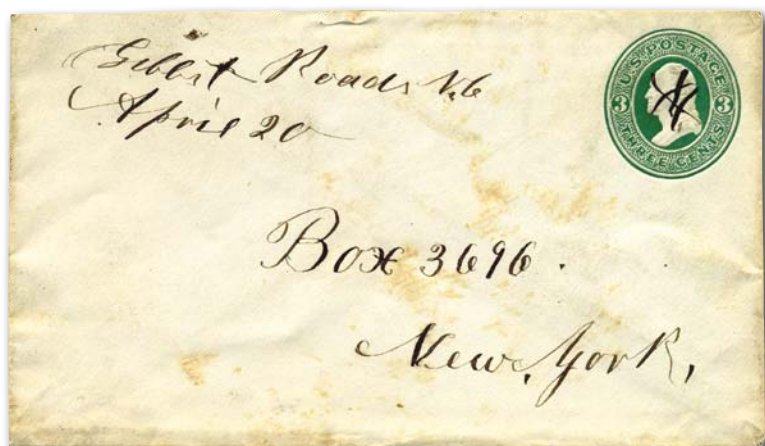 Roads N.C
April 20
U.S. POSTAGE
3 3
THREE CENTS
Box 3696.
New York,